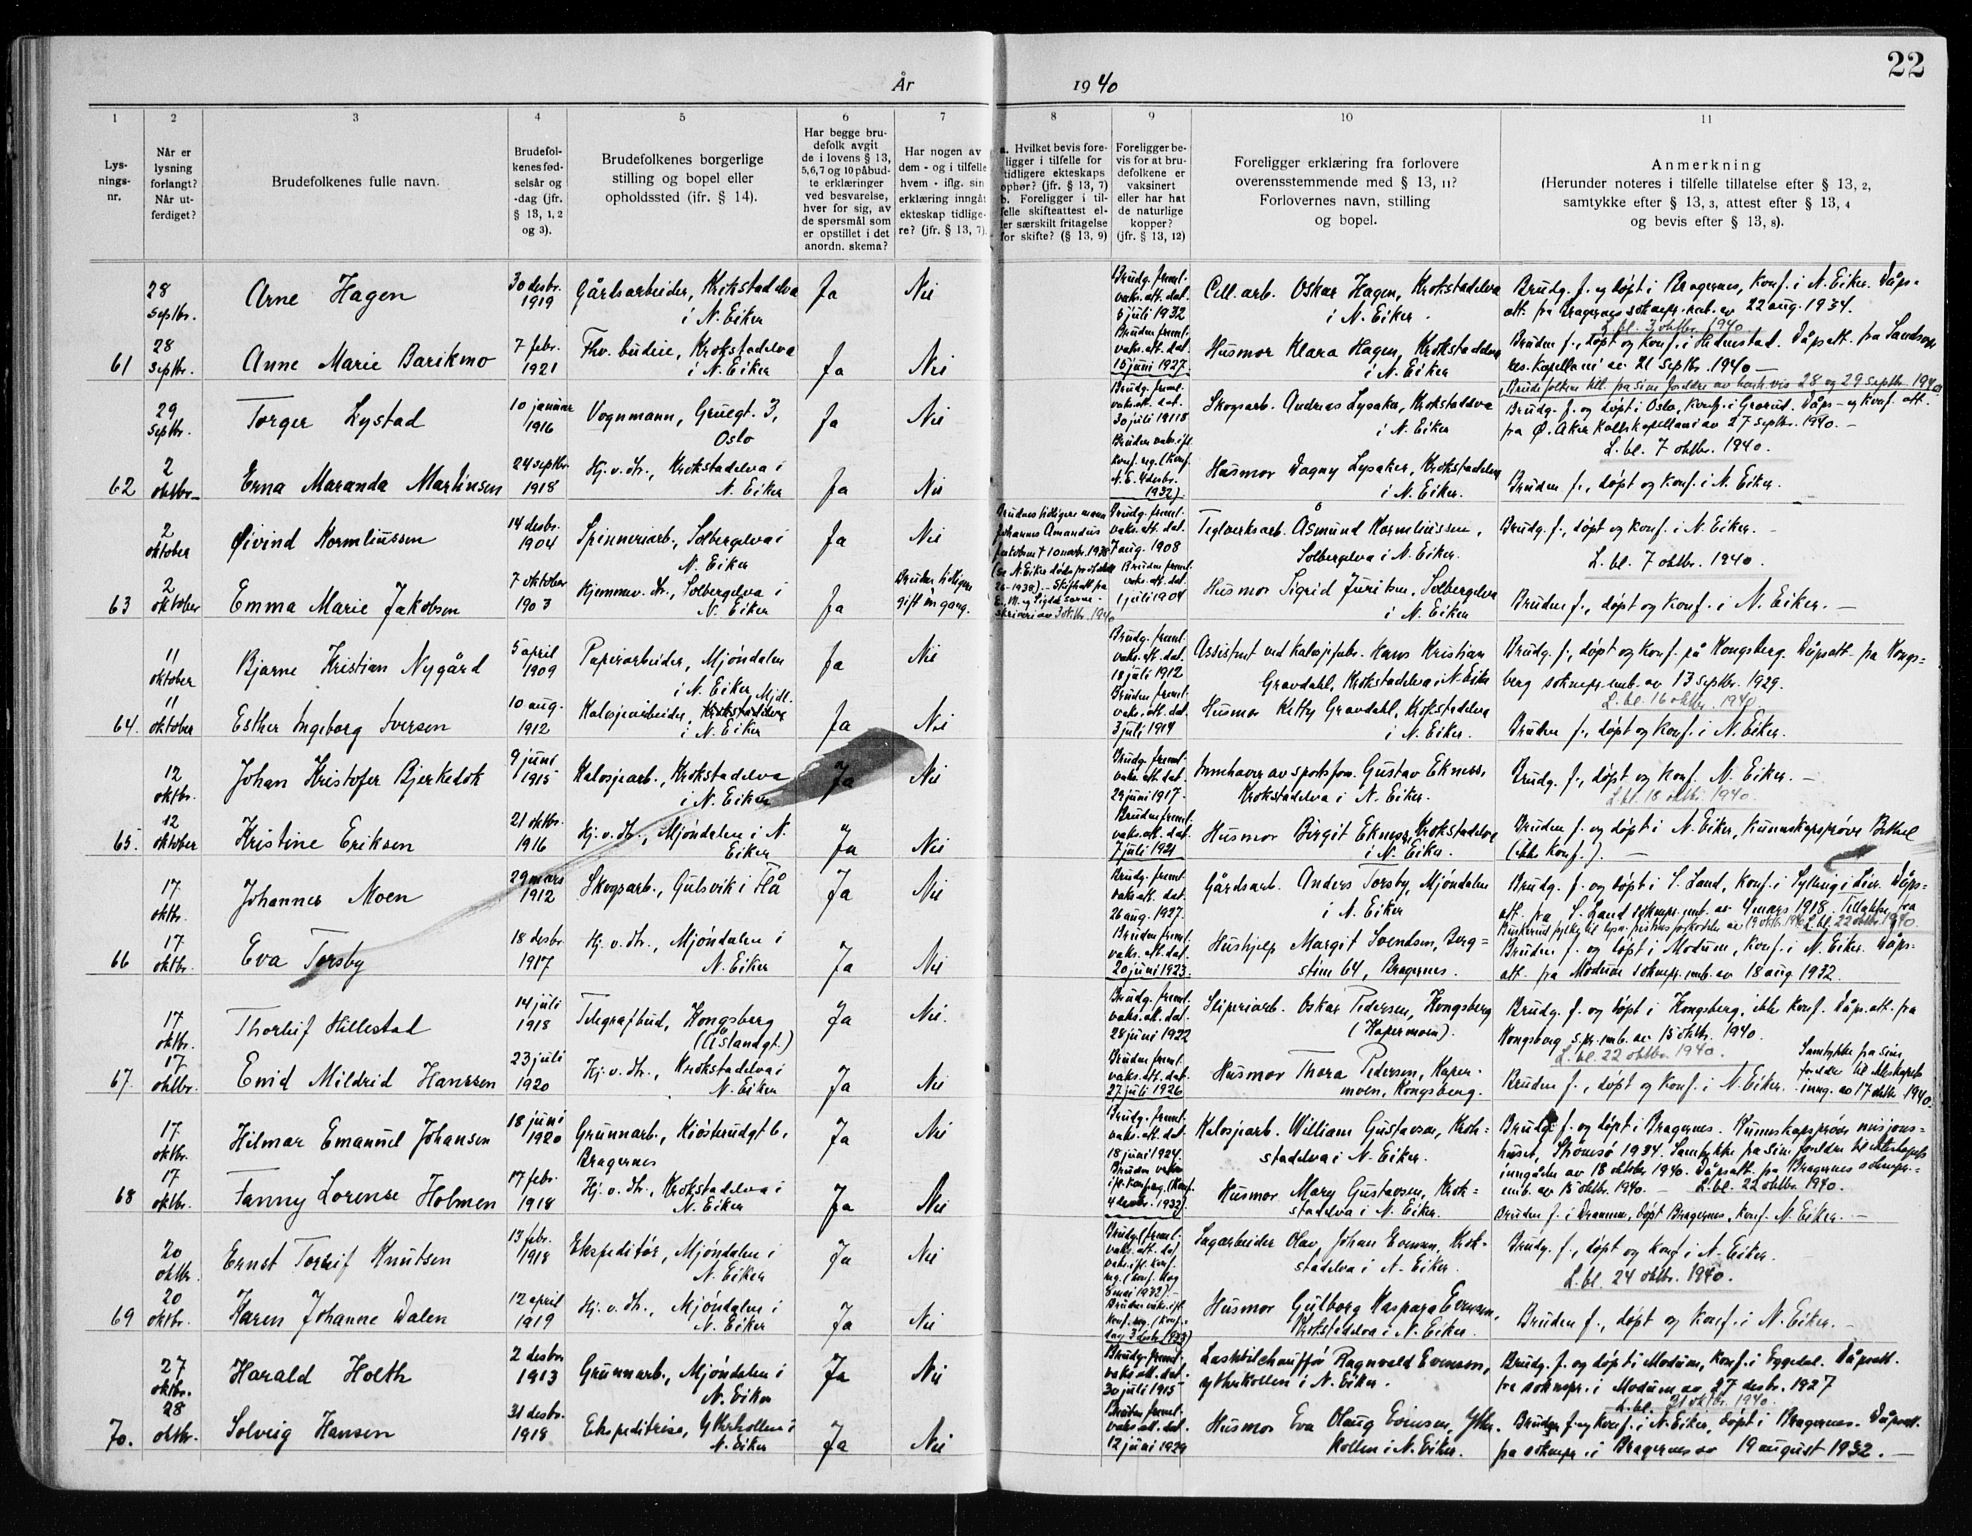 22
År 1940
1
2
3
4
5
6
7
8
9
10
11
Lys-
nings-
nr.
Når er
lysning
forlangt?
Når ut-
ferdiget?
Brudefolkenes fulle navn.
Brudefol-
kenes fød-
selsår og
-dag (jfr.
§ 13, 1, 2
og 3).
Brudefolkenes borgerlige
stilling og bopel eller
opholdssted (ifr. § 14).
Har begge bru-
defolk avgit
de i lovens § 13,
5,6,7 og 10 påbud-
te erklæringer
ved besvarelse,
hver for sig, av
de spørsmål som
er opstillet i det
anordn. skema?
Har nogen av
dem - og i tilfelle
hvem - iflg. sin
erklæring inngåt
ekteskap tidlige-
re? (jfr. § 13, 7).
a. Hvilket bevis fore-
ligger i tilfelle for
tidligere ekteskaps
ophør? (jfr. § 13, 7)
b. Foreligger i til-
felle skifteattest el-
ler særskilt fritagelse
for skifte? (§ 13, 9)
Foreligger be-
vis for at bru-
defolkene er
vaksinert
eller har hat
de naturlige
kopper?
(jfr. § 13, 12)
Foreligger erklæring fra forlovere
overensstemmende med § 13, 11?
Forlovernes navn, stilling
og bopel.
Anmerkning
(Herunder noteres i tilfelle tillatelse efter § 13, 2,
samtykke efter § 13, 3, attest efter § 13, 4
og bevis efter § 13, 8).
28
septbr.
Arne Hagen
30 desbr.
1919
Gårdsarbeider, Krokstadelva
i N. Eiker
Ja
Nei
Brudg. freml.
vaks. att. dat.
5 juli 1932
Cell. arb. Oskar Hagen, Krokstadelva
i N. Eiker.
Brudg. f. og døpt i Bragernes, konf. i N. Eiker. Dåps-
att. fra Bragernes soknepr. emb. av 22 aug. 1934.
L. bl. 3 oktbr. 1940.
61
28
septbr.
Anne Marie Barikmo
7 febr.
1921
Fhv. budeie, Krokstadelva
i N. Eiker
Ja
Nei
Bruden freml.
vaks. att. dat.
15 juni 1927.
Husmor Klara Hagen, Krokstadelva
i N. Eiker
Bruden f., døpt og konf. i Hedmestad. Dåpsatt. fra
res. kapellani av 21 septbr. 1940 —
Brudefolkene till. fra sine foreldre av henh.vis 28 og 29 septbr. 1940
29
septbr.
Torger Lystad
10 januar
1916
Vognmann, Gruegt. 3,
Oslo
Ja
Nei
Brudg. freml.
vaks. att. dat.
30 juli 1918
Skogsarb. Andreas Lysaker, Krokstadelva
i N. Eiker
Brudg. f. og døpt i Oslo, konf. i Grorud. Dåps- og konf. att.
fra Ø. Aker kallskapellani av 27 septbr. 1940. —
L. bl. 7 oktbr. 1940.
62
2
oktbr.
Erna Maranda Martinsen
24 septbr.
1918
Hj. v. dr., Krokstadelva i
N. Eiker
Ja
Nei
Bruden vaks. ifl.
konf. reg. (konf.
N. E. 4 desbr.
1932)
Husmor Dagny Lysaker, Krokstadelva
i N. Eiker.
Bruden f., døpt og konf. i N. Eiker.
2
oktober
Øivind Kormeliussen
14 desbr.
1904
Spinneriarb., Solbergelva i
N. Eiker
Ja
Nei
Brudens tidligere mann
Johannes Amandus
Jakobsen † 10 novbr. 1938
Brudg. freml.
vaks. att. dat.
7 aug. 1908
Teglverksarb. Åsmund Kormeliussen,
Solbergelva i N. Eiker.
Brudg. f., døpt og konf. i N. Eiker. —
L. bl. 7 oktbr. 1940.
63
2
oktober
Emma Marie Jakobsen
7 oktober
1903
Hjemmev. dr., Solbergelva i
N. Eiker
Ja
Bruden tidligere
gift én gang.
Bruden freml.
vaks. att. dat.
1 juli 1904
Husmor Sigrid Juriksen, Solbergelva
i N. Eiker
Bruden f., døpt og konf. i N. Eiker. —
11
oktober
Bjarne Kristian Nygård
5 april
1909
Papirarbeider, Mjøndalen
i N. Eiker
Ja
Nei
Brudg. freml.
vaks. att. dat.
18 juli 1912
Assistent ved kalosjefabr. Hans Kristian
Gravdahl, Krokstadelva i N. Eiker
Brudg. f., døpt og konf. på Kongsberg. Dåpsatt. fra Kongs-
berg soknepr. emb. av 13 septbr. 1929.
L. bl. 16 oktbr. 1940.
64.
11
oktober
Esther Ingeborg Iversen
10 aug.
1912
Kalosjearbeider, Krokstadelva Mjdl.
i N. Eiker
Ja
Nei
Bruden freml.
vaks. att. dat.
3 juli 1914
Husmor Ketty Gravdahl, Krokstadelva
i N. Eiker.
Bruden f., døpt og konf. i N. Eiker.
12
oktbr.
Johan Kristofer Bjerkedok
9 juni
1915
Kalosjearb., Krokstadelva
i N. Eiker
Ja
Nei
Brudg. freml.
vaks. att. dat.
29 juni 1917.
Innehaver av sportsforr. Gustav Eknes,
Krokstadelva i N. Eiker.
Brudg. f., døpt og konf. N. Eiker. —
L. bl. 18 oktbr. 1940.
65.
12
oktober
Kristine Eriksen
21 oktbr.
1916
Hj. v. dr., Mjøndalen i N.
Eiker
Ja
Nei
Bruden freml.
vaks. att. dat.
7 juli 1921
Husmor Birgit Eknes, Krokstadelva
i N. Eiker.
Bruden f. og døpt i N. Eiker, kunnskapsprøve Bethel
(ikke konf.). —
17
oktbr.
Johannes Moen
29 mars
1912
Skogsarb., Gulsvik i Flå
Ja
Nei
Brudg. freml.
vaks. att. dat.
26 aug. 1927.
Gårdsarb. Anders Torsby, Mjøndalen
i N. Eiker
Brudg. f. og døpt i S. Land, konf. i Sylling i Lier. Dåps-
att. fra S. Land soknepr. emb. av 4 mars 1918. Tillatelse fra
L. bl. 22 oktbr. 1940.
66
17
oktbr.
Eva Torsby
18 desbr.
1917
Hj. v. dr., Mjøndalen i
N. Eiker
Ja
Nei
Bruden freml.
vaks. att. dat.
20 juni 1923.
Hushjelp Margit Svendsen, Berg=
stien 64, Bragernes.
Bruden f. og døpt i Modum, konf. i N. Eiker. Dåps-
att. fra Modum soknepr. emb. av 18 aug. 1932.
17
oktbr.
Thorleif Hillestad
14 juli
1918
Telegrafbud, Kongsberg
(Åslandgt.)
Ja
Nei.
Brudg. freml.
vaks. att. dat.
28 juni 1922
Sliperiarb. Oskar Pedersen, Kongsberg
(Kapermoen).
Brudg. f. og døpt i Kongsberg, ikke konf. Dåps. att. fra
Kongsberg s.pr. emb. av 15 oktbr. 1940.
L. bl. 22 oktbr. 1940.
67.
17
oktbr.
Enid Mildrid Hanssen
23 juli
1920
Hj. v. dr., Krokstadelva i
N. Eiker
Ja
Nei
Bruden freml.
vaks. att. dat.
27 juli 1926
Husmor Thora Pedersen, Kaper-
moen, Kongsberg.
Bruden f., døpt og konf. i N. Eiker.
Samtykke fra sine
foreldre til ekteskapets
inng. av 17 oktbr. 1940.
17
oktbr.
Hilmar Emanuel Johansen
18 juni
1920
Grunnarb., Kiøsterudgt 6,
Bragernes
Ja
Nei
Brudg. freml.
vaks. att. dat.
18 juni 1924.
Kalosjearb. William Gustavsen, Krok-
stadelva i N. Eiker.
Brudg. f. og døpt i Bragernes. Kunnskapsprøve misjons-
huset, Strømsø 1934. Samtykke fra sine foreldre til ekteskapets
inngåelse av 18 oktober 1940. Dåpsatt. fra Bragernes soknepr.-
emb. av 15 oktbr. 1940. — L. bl. 22 oktbr. 1940.
68
17
oktbr.
Fanny Lorense Holmen
17 febr.
1918
Hj. v. dr., Krokstadelva i
N. Eiker
Ja
Nei
Husmor Mary Gustavsen, Krok=
stadelva i N. Eiker.
Bruden f. i Drammen, døpt Bragernes, konf. N. Eiker. —
20
oktbr.
Ernst Torleif Knutsen
13 febr.
1918
Ekspeditør, Mjøndalen i
N. Eiker
Ja
Nei
Sagarbeider Olav Johan Evensen, Krok-
stadelva i N. Eiker.
Brudg. f., døpt og konf. i N. Eiker.
L. bl. 24 oktbr. 1940.
69
20
oktbr.
Karen Johanne Dalen
12 april
1919
Hj. v. dr., Mjøndalen i
N. Eiker
Ja
Nei
Husmor Gulborg Kaspara Evensen,
Krokstadelva i N. Eiker.
Bruden f., døpt og konf. i N. Eiker. —
27
oktbr.
Harald Holth
2 desbr.
1913
Grunnarb., Mjøndalen i
N. Eiker
Ja
Nei
Brudg. freml.
vaks. att. dat.
30 juli 1915
Lastebilchauffør Ragnvald Evensen,
Ytterkollen i N. Eiker.
Brudg. f. og døpt i Modum, konf. i Eggedal. Dåpsatt.
fra soknepr. i Modum av 27 desbr. 1927
L. bl. 31 oktbr. 1940.
70.
28
oktbr.
Solveig Hansen
31 desbr.
1918
Ekspeditrise, Ytterkollen i
N. Eiker
Ja
Nei
Bruden freml.
vaks. att. dat.
12 juni 1929
Husmor Eva Olaug Evensen, Ytter-
kollen i N. Eiker.
Bruden f. og konf. i N. Eiker, døpt i Bragernes. Dåpsatt.
fra soknepr. i Bragernes av 19 august 1932. —